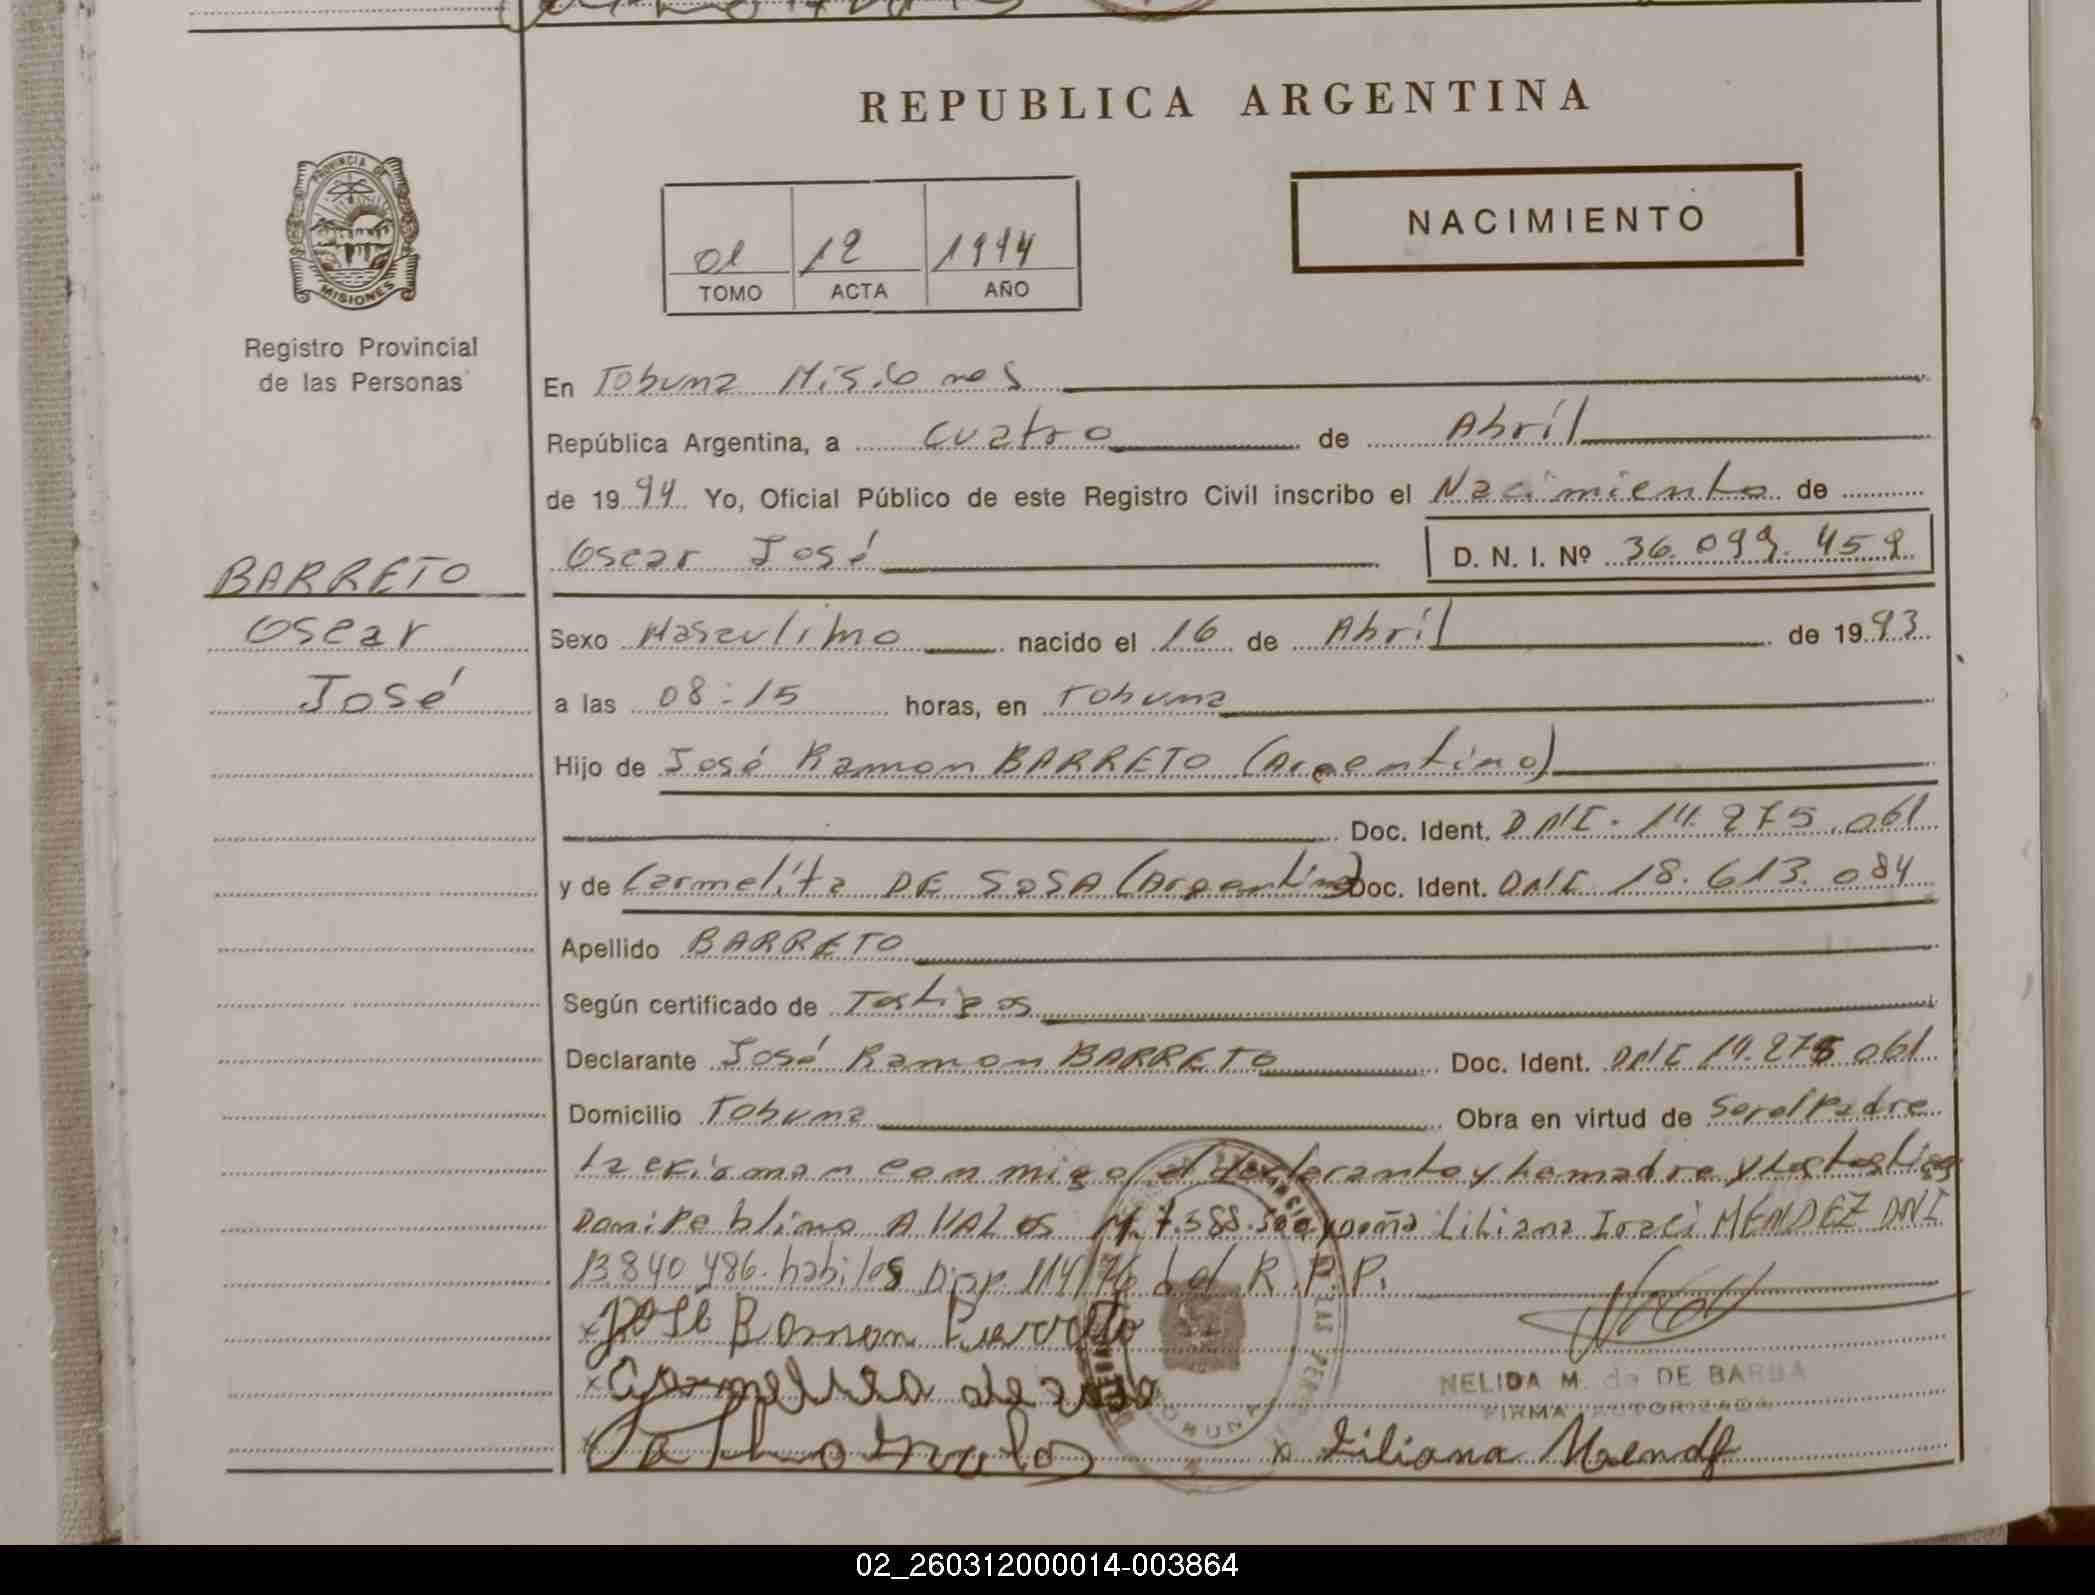 REPUBLICA ARGENTINA
PROVINCIA DE MISIONES
Registro Provincial
de las Personas
01 12 1994
TOMO ACTA AÑO
NACIMIENTO
En Tobuna Misiones
República Argentina, a cuatro de Abríl
de 1994 Yo, Oficial Público de este Registro Civil inscribo el Nacimiento de
Oscar José D. N. I. Nº 36.099.459
BARRETO
Oscar
José
Sexo Masculino nacido el 16 de Abríl de 1993
a las 08:15 horas, en Tobuna
Hijo de José Ramon BARRETO (Argentino)
Doc. Ident. DNI. 14.275.061
y de Carmelita DE SOSA (Argentina) Doc. Ident. DNI 18.613.084
Apellido BARRETO
Según certificado de Testigos
Declarante José Ramon BARRETO Doc. Ident. DNI 14.275.061
Domicilio Tobuna Obra en virtud de Ser el Padre
con migo el declarante y la madre y los testigos
AVALOS M. 7.588.500 y doña Liliana Iraci MENDEZ DNI
13.840.486. habiles Disp. 114/76 del R.P.P.
José Ramon Barreto
Carmelita de sosa
NELIDA M. de DE BARBA
FIRMA AUTORIZADA
x Liliana Mendez
02_260312000014-003864